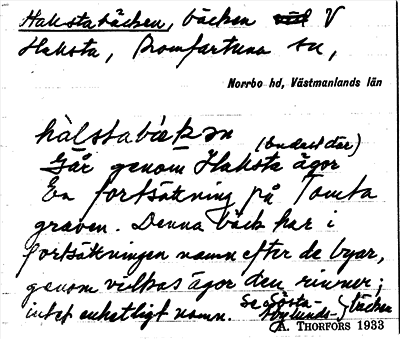 Hakstabäcken, bäcken V
Haksta, Romfartuna sn,
Norrbo hd, Västmanlands län
hàkstabäkən
(bredvid står)
Går genom Haksta ägor
En fortsättning på Tomta
graven. Denna bäck har i
fortsättningen namn efter de byar,
genom vilkas ägor den rinner;
intet enhetligt namn. Se Gösta-
bylunds- } bäcken
A. THORFORS 1933